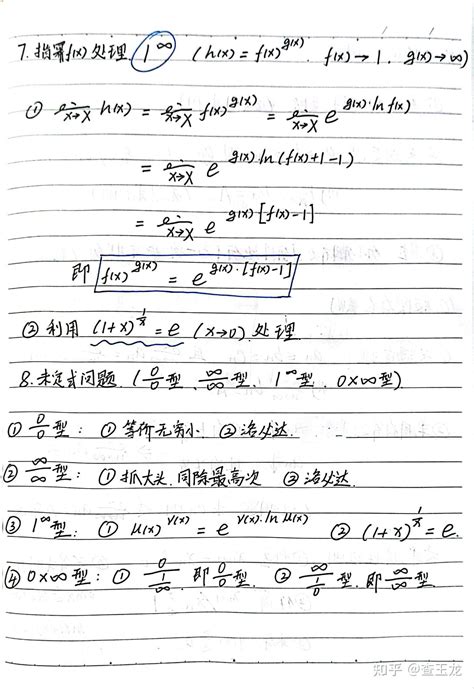 7. 指幂f(x)处理 1^∞ (h(x) = f(x)^g(x). f(x)→1. g(x)→∞)
① lim x→X h(x) = lim x→X f(x)^g(x) = lim x→X e^g(x)·ln f(x)
= lim x→X e^g(x) ln(f(x)+1-1)
= lim x→X e^g(x)[f(x)-1]
即 f(x)^g(x) = e^g(x)·[f(x)-1]
② 利用 (1+x)^1/x = e (x→0) 处理
8. 未定式问题. (0/0型. ∞/∞型. 1^∞型. 0×∞型)
① 0/0型: ① 等价无穷小 ② 洛必达.
② ∞/∞型: ① 抓大头.同除最高次 ② 洛必达.
③ 1^∞型: ① μ(x)^v(x) = e^v(x)·ln μ(x) ② (1+x)^1/x = e.
④ 0×∞型: ① 0/(1/∞) 即0/0型. ② ∞/(1/0)型. 即∞/∞型
知乎 @查玉龙